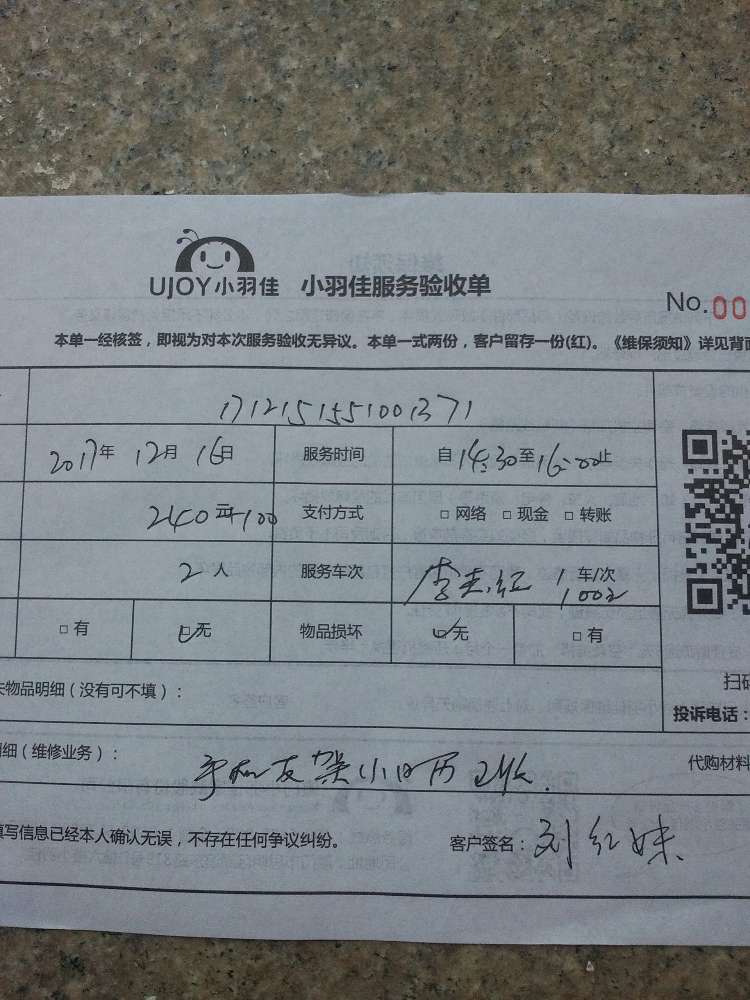 UJOY小羽佳 小羽佳服务验收单
No.00
本单一经核签，即视为对本次服务验收无异议。本单一式两份，客户留存一份(红)。《维保须知》详见背面
1712151551001371
2017年 12月 16日 服务时间 自14:30至16:00止
240 支付方式 □网络 □现金 □转账
2人 服务车次 李志红 1车/次
□有 □无 物品损坏 □无 □有
扫码
失物品明细（没有可不填）：
投诉电话：
明细（维修业务）： 手机支架小日历已收.
代购材料
填写信息已经本人确认无误，不存在任何争议纠纷。 客户签名：刘红妹